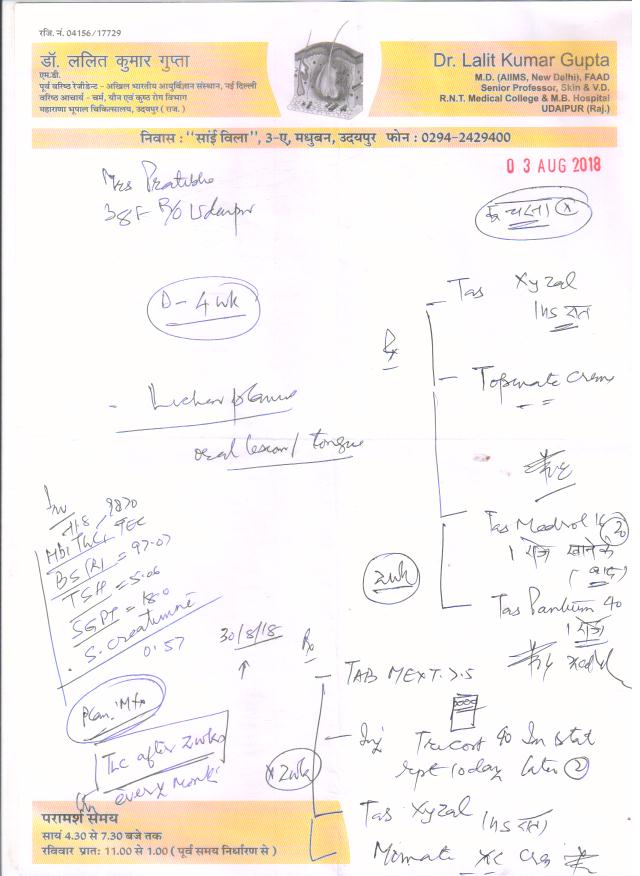 रजि. नं. 04156/17729
डॉ. ललित कुमार गुप्ता
एम.डी.
पूर्व वरिष्ठ रेजीडेन्ट - अखिल भारतीय आयुर्विज्ञान संस्थान, नई दिल्ली
वरिष्ठ आचार्य - चर्म, यौन एवं कुष्ठ रोग विभाग
महाराणा भूपाल चिकित्सालय, उदयपुर ( राज. )
Dr. Lalit Kumar Gupta
M.D. (AIIMS, New Delhi), FAAD
Senior Professor, Skin & V.D.
R.N.T. Medical College & M.B. Hospital
UDAIPUR (Raj.)
निवास : "सांई विला", 3-ए, मधुबन, उदयपुर फोन : 0294-2429400
0 3 AUG 2018
Mrs Pratibha
38F R/o Udaipur
D - 4 wk
- Lichen planus
oral lesion / tongue
Rx
- Tab Xyzal
1hs रात
- Topinate Cream
Tab Medrol 16
1 रोज खाने के
( बाद )
2wk
Tab Pantium 40
1 रोज
Inv
TLC
BS (R) = 97.07
TSH = 5.06
SGPT = 18.0
S. Creatinine
0.57
Plan: Mtx
TLC after 2 wks
every month
30/8/18
Rx
- TAB MEXT 7.5
- Inj Tricort 40 Im stat
rept 10 day later 2
x 2wk
- Tab Xyzal 1hs रात
Momate Cream
परामर्श समय
सायं 4.30 से 7.30 बजे तक
रविवार प्रातः 11.00 से 1.00 ( पूर्व समय निर्धारण से )